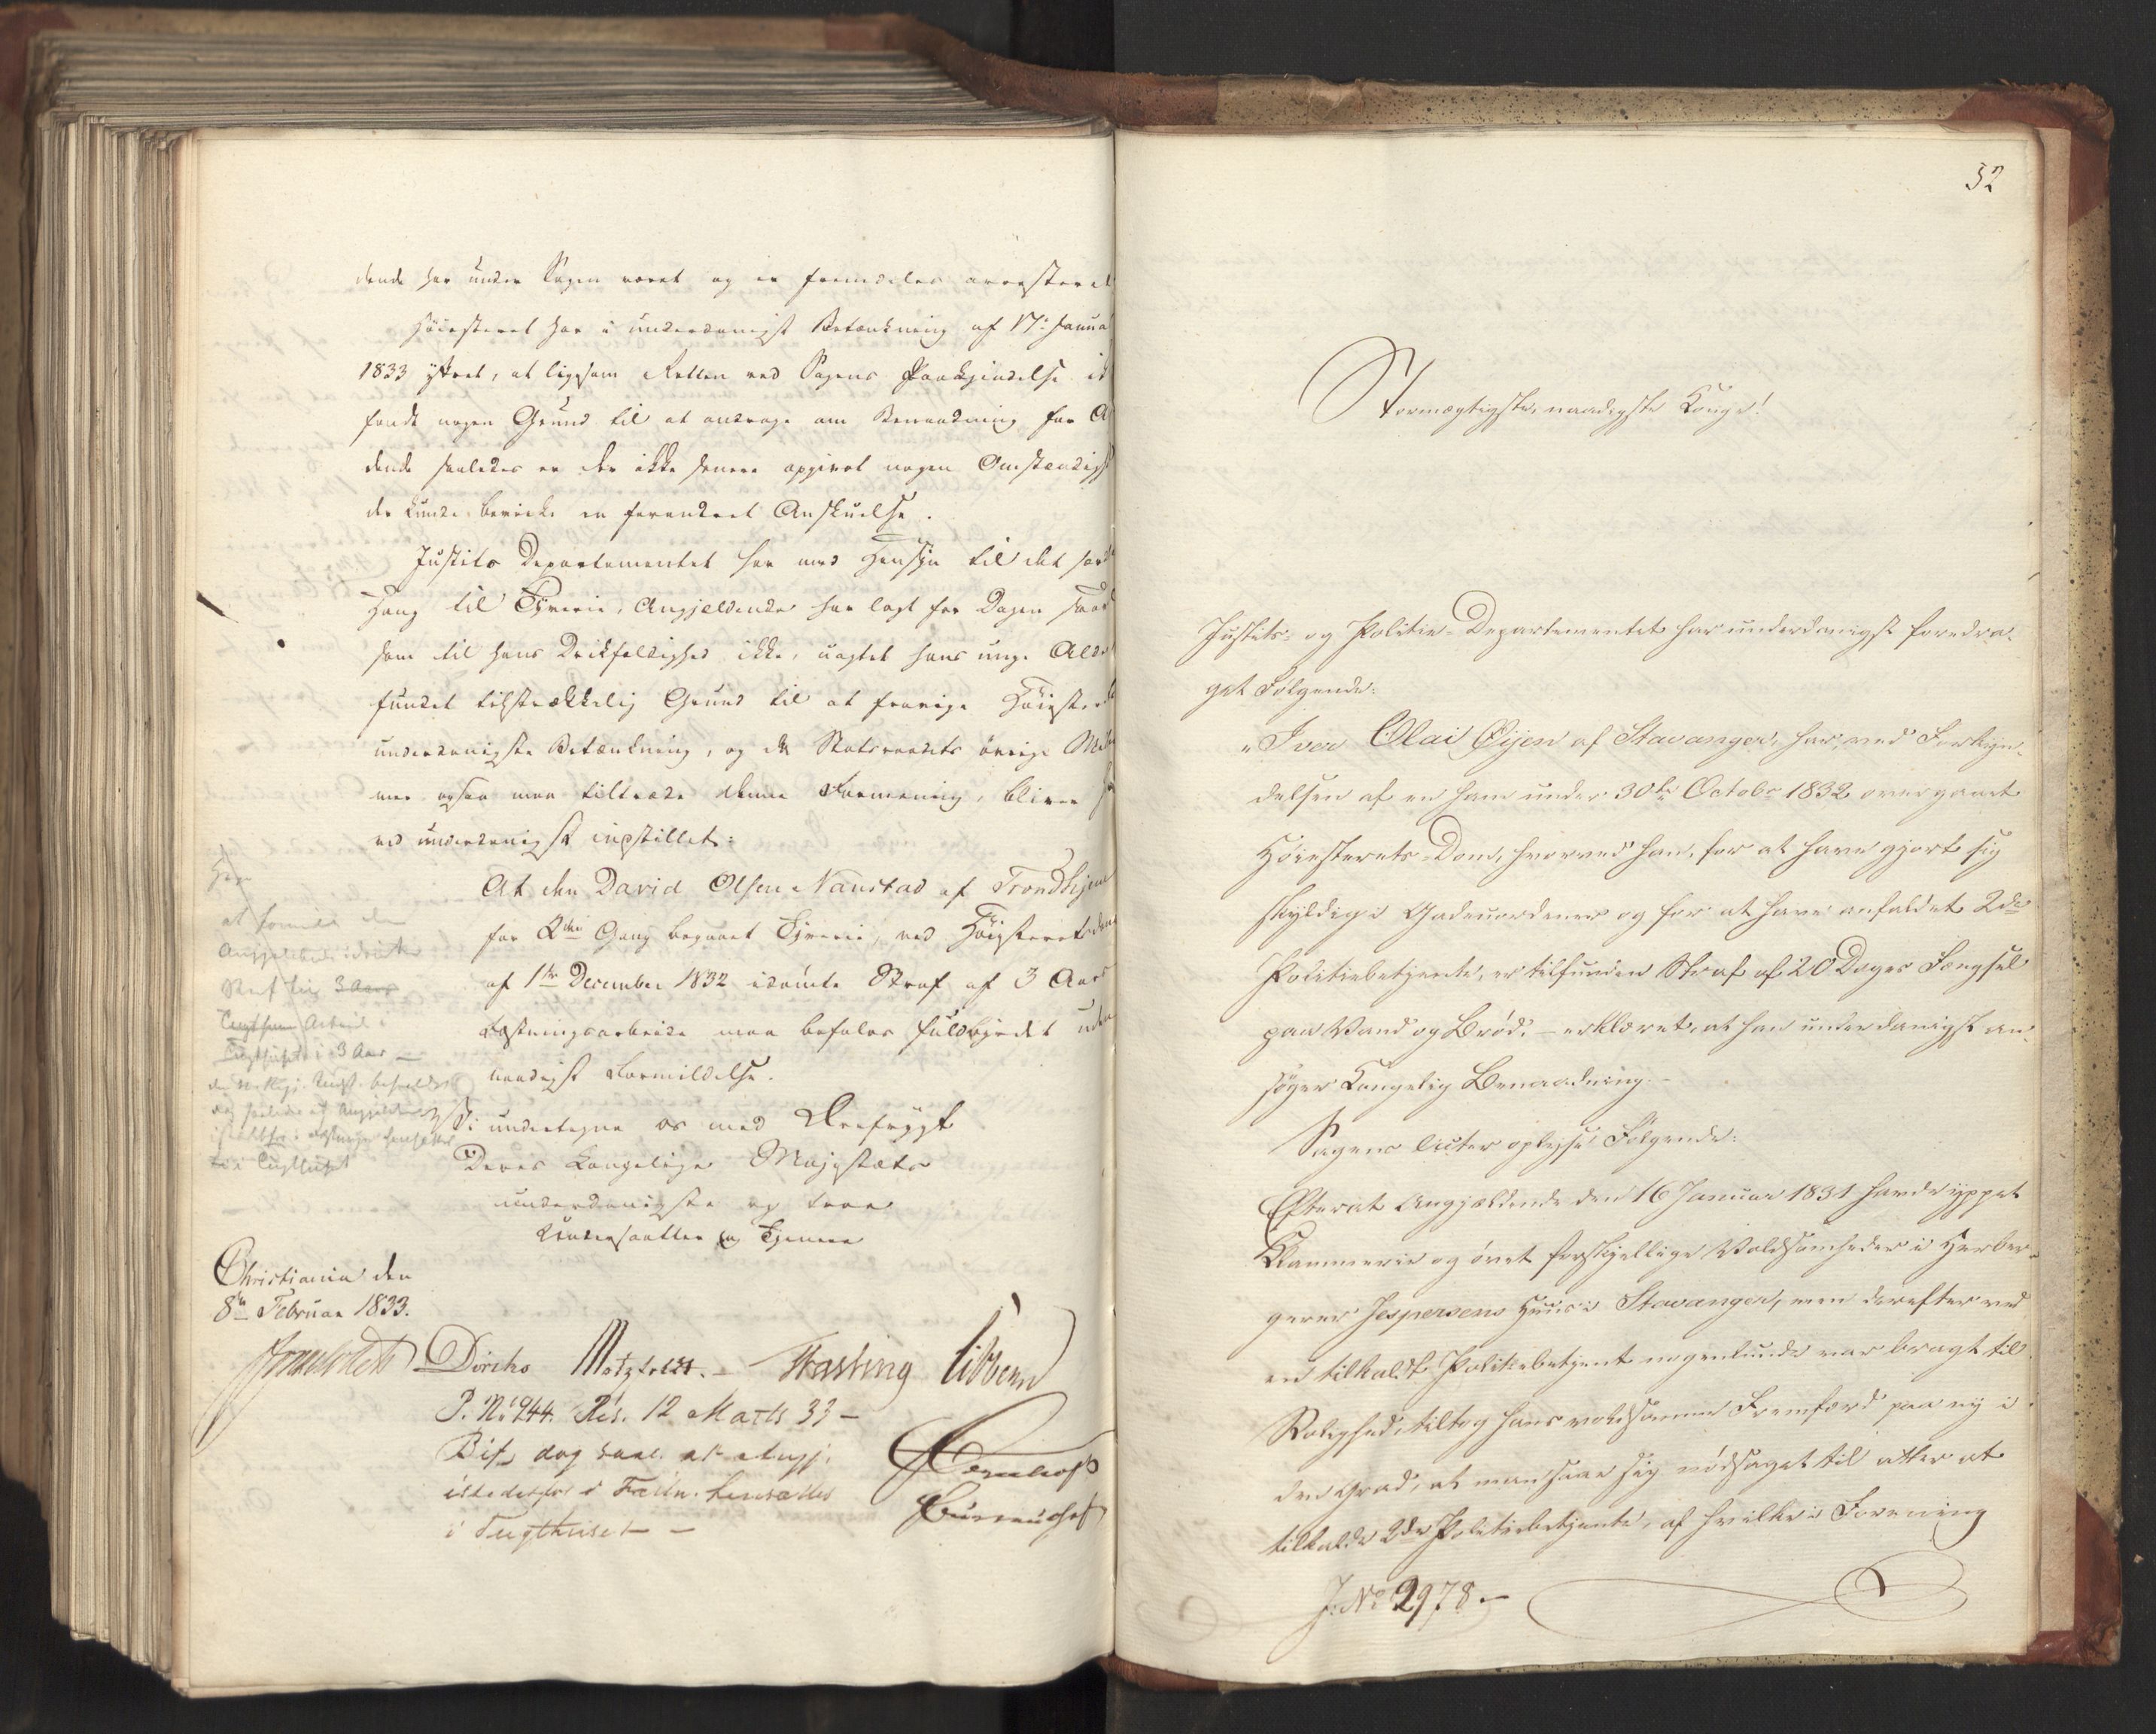 dende har under Sagen været og er fremdeles arresteret
Høiesteret har i underdanigst Betænkning af 17 Janua
1833 yttret, at ligesom Retten ved Sagens Paakjendelse ik
fandt nogen Grund til at andrage om Benaadning for A
dende saaledes er der ikke senere opgivet nogen Omstændigh
der kunde bevirke en forandret Anskuelse.
Justits Departementet har med Hensyn til det
Hang til Tyverie, Angjeldende har lagt for Dagen saa
som til hans Drikfældighed ikke, uagtet hans unge Alder
fundet tilstrækkelig Grund til at fravige Høiesterets
underdanigste Betænkning, og da Statsraadets øvrige Med
mer ogsaa maa tiltræde denne Formening, bliver
ved underdanigst indstillet:
At den David Olsen Nanstad af Trondhjem
for 2den Gang begaaet Tyverie, ved Høiesteretsdom
af 1ste December 1832 idømte Straf af 3 Aars
Fæstningsarbeide maa befales fuldbyrdet uden
naadigst Formildelse.
Vi undertegne os med Ærefrygt
Deres Kongelige Majestæts
underdanigste og troe
Undersaatter og Tjenere
at
Angjeldende idømte
Straf 3 Aars
Tugthuus Arbeid i
Tugthuset i 3 Aar –
i Tugthuset
Christiania den
8de Februar 1833.
Diriks Motzfeldt. – Fasting Vibbe
P. No 944. Res. 12 Marts 33 –
Bif. dog saal. at Angj.
istedetfor i Fæstn. hensættes
i Tugthuset –
32
Stormægtigste, naadigste Konge!
Justits- og Politie-Departementet har underdanigst foredra-
get Følgende:
"Iver Olai Øijen af Stavanger, har, ved Forkyn-
delsen af en ham under 30te Octobr 1832 overgaaet
Høiesterets-Dom, hvorved han, for at have gjort sig
skyldig i Gadeuordener og for at have anfaldet 2de
Politiebetjente, er tilfunden Straf af 20 Dages Fængsel
paa Vand og Brød, – erklæret, at han underdanigst an-
søger Kongelig Benaadning. –
Sagens Acter oplyse Følgende:
Efterat Angjældende den 16 Januar 1831 havde yppet
Klammerie og øvet forskjellige Voldsomheder i Herber-
gerer Jespersens Huus i Stavanger, men derefter ved
en tilkaldt Politiebetjent nogenlunde var bragt til
Rolighed, tiltog hans voldsomme Fremfærd paa ny i
den Grad, at man saae sig nødsaget til atter at
tilkalde 2de Politiebetjente, af hvilke i Forening
J. No 2978. –